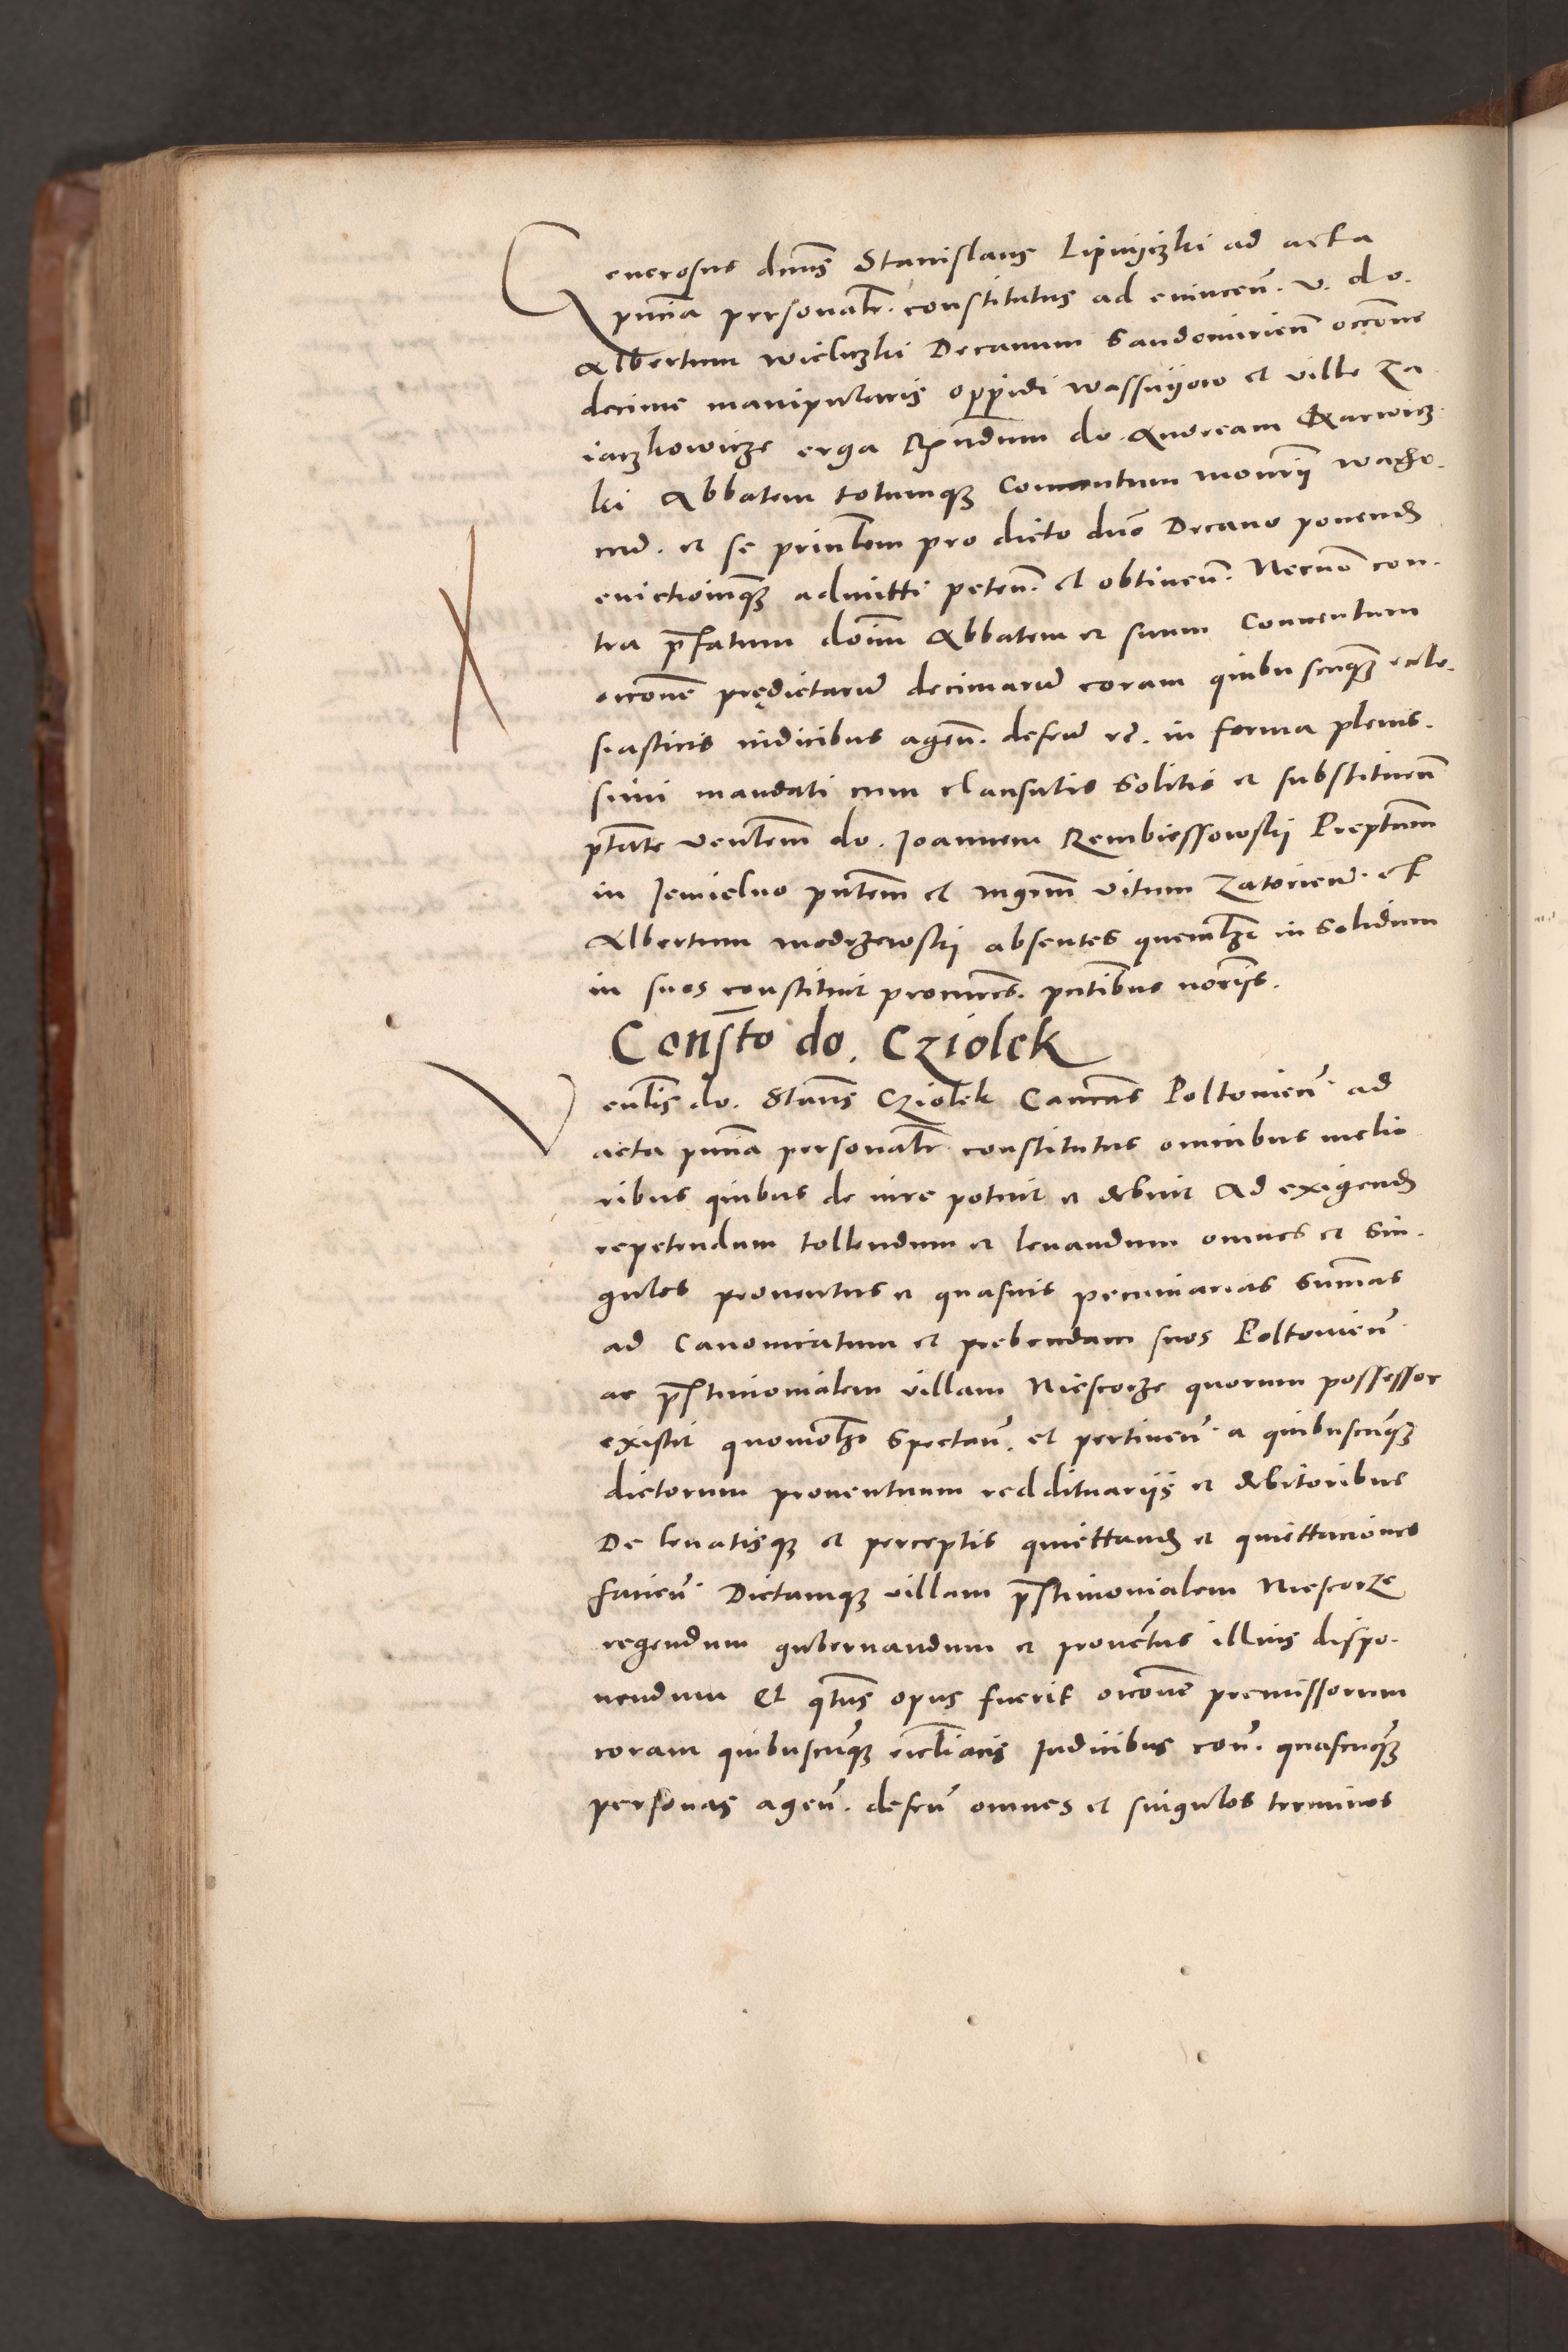 Generosus dnns Stanislaus Lipnyczki ad acta
pnnia personalr. constitutus ad euincen. v. do.
Albertum Wieliczki Decanum Sandomirien occone
decime manipularis oppidi Wassnyow et ville Za
iaczkowicze erga Rndum do. Andream Karwicz
ki Abbatem totumq Conuentum monrii Wacho.
cen. et se prinlem pro dicto dno Decano ponend
euictioniq admitti peten. et obtinen. Necno con.
tra prefatum doim Abbatem et suum Conuentum
occone prędictaru decimaru coram quibuscuq eccle.
siasticis iudicibus agen. defen rc. in forma plenis.
simi mandati cum clausulis solitis et substituen
ptate Venlem do. Joannem Rembiessowski Preptum
in Jemielno pntem et mgrm Vitum Zatorien. et
Albertum Modrzewski absentes quemlz in solidum
in suos constituit procures. pntibus noriis.
Constto do. Cziolek
Venlis do. Stanns Cziolek Canncus Poltouien. ad
acta pnnia personalr constitutus omnibus melio
ribus quibus de iure potuit et debuit Ad exigend
repetendum tollendum et leuandum omnes et sin.
gulos prouentus et quasuis pecuniarias summas
ad Canonicatum et prebendam suos Poltouien
ac prestimonialem villam Niescorze quorum possessor
existit quomolz spectan. et pertinen. a quibuscuq
dictorum prouentuum reddituariis et debitoribus
De leuatisq et perceptis quiettand et quiettaciones
facien. Dictamq villam prestimonialem Niescorze
regendum gubernandum et prouetus illius dispo.
nendum Et qtus opus fuerit occone premissorum
coram quibuscuq eccliacis Judicibus con. quascuq
personas agen. defen omnes et singulos terminos